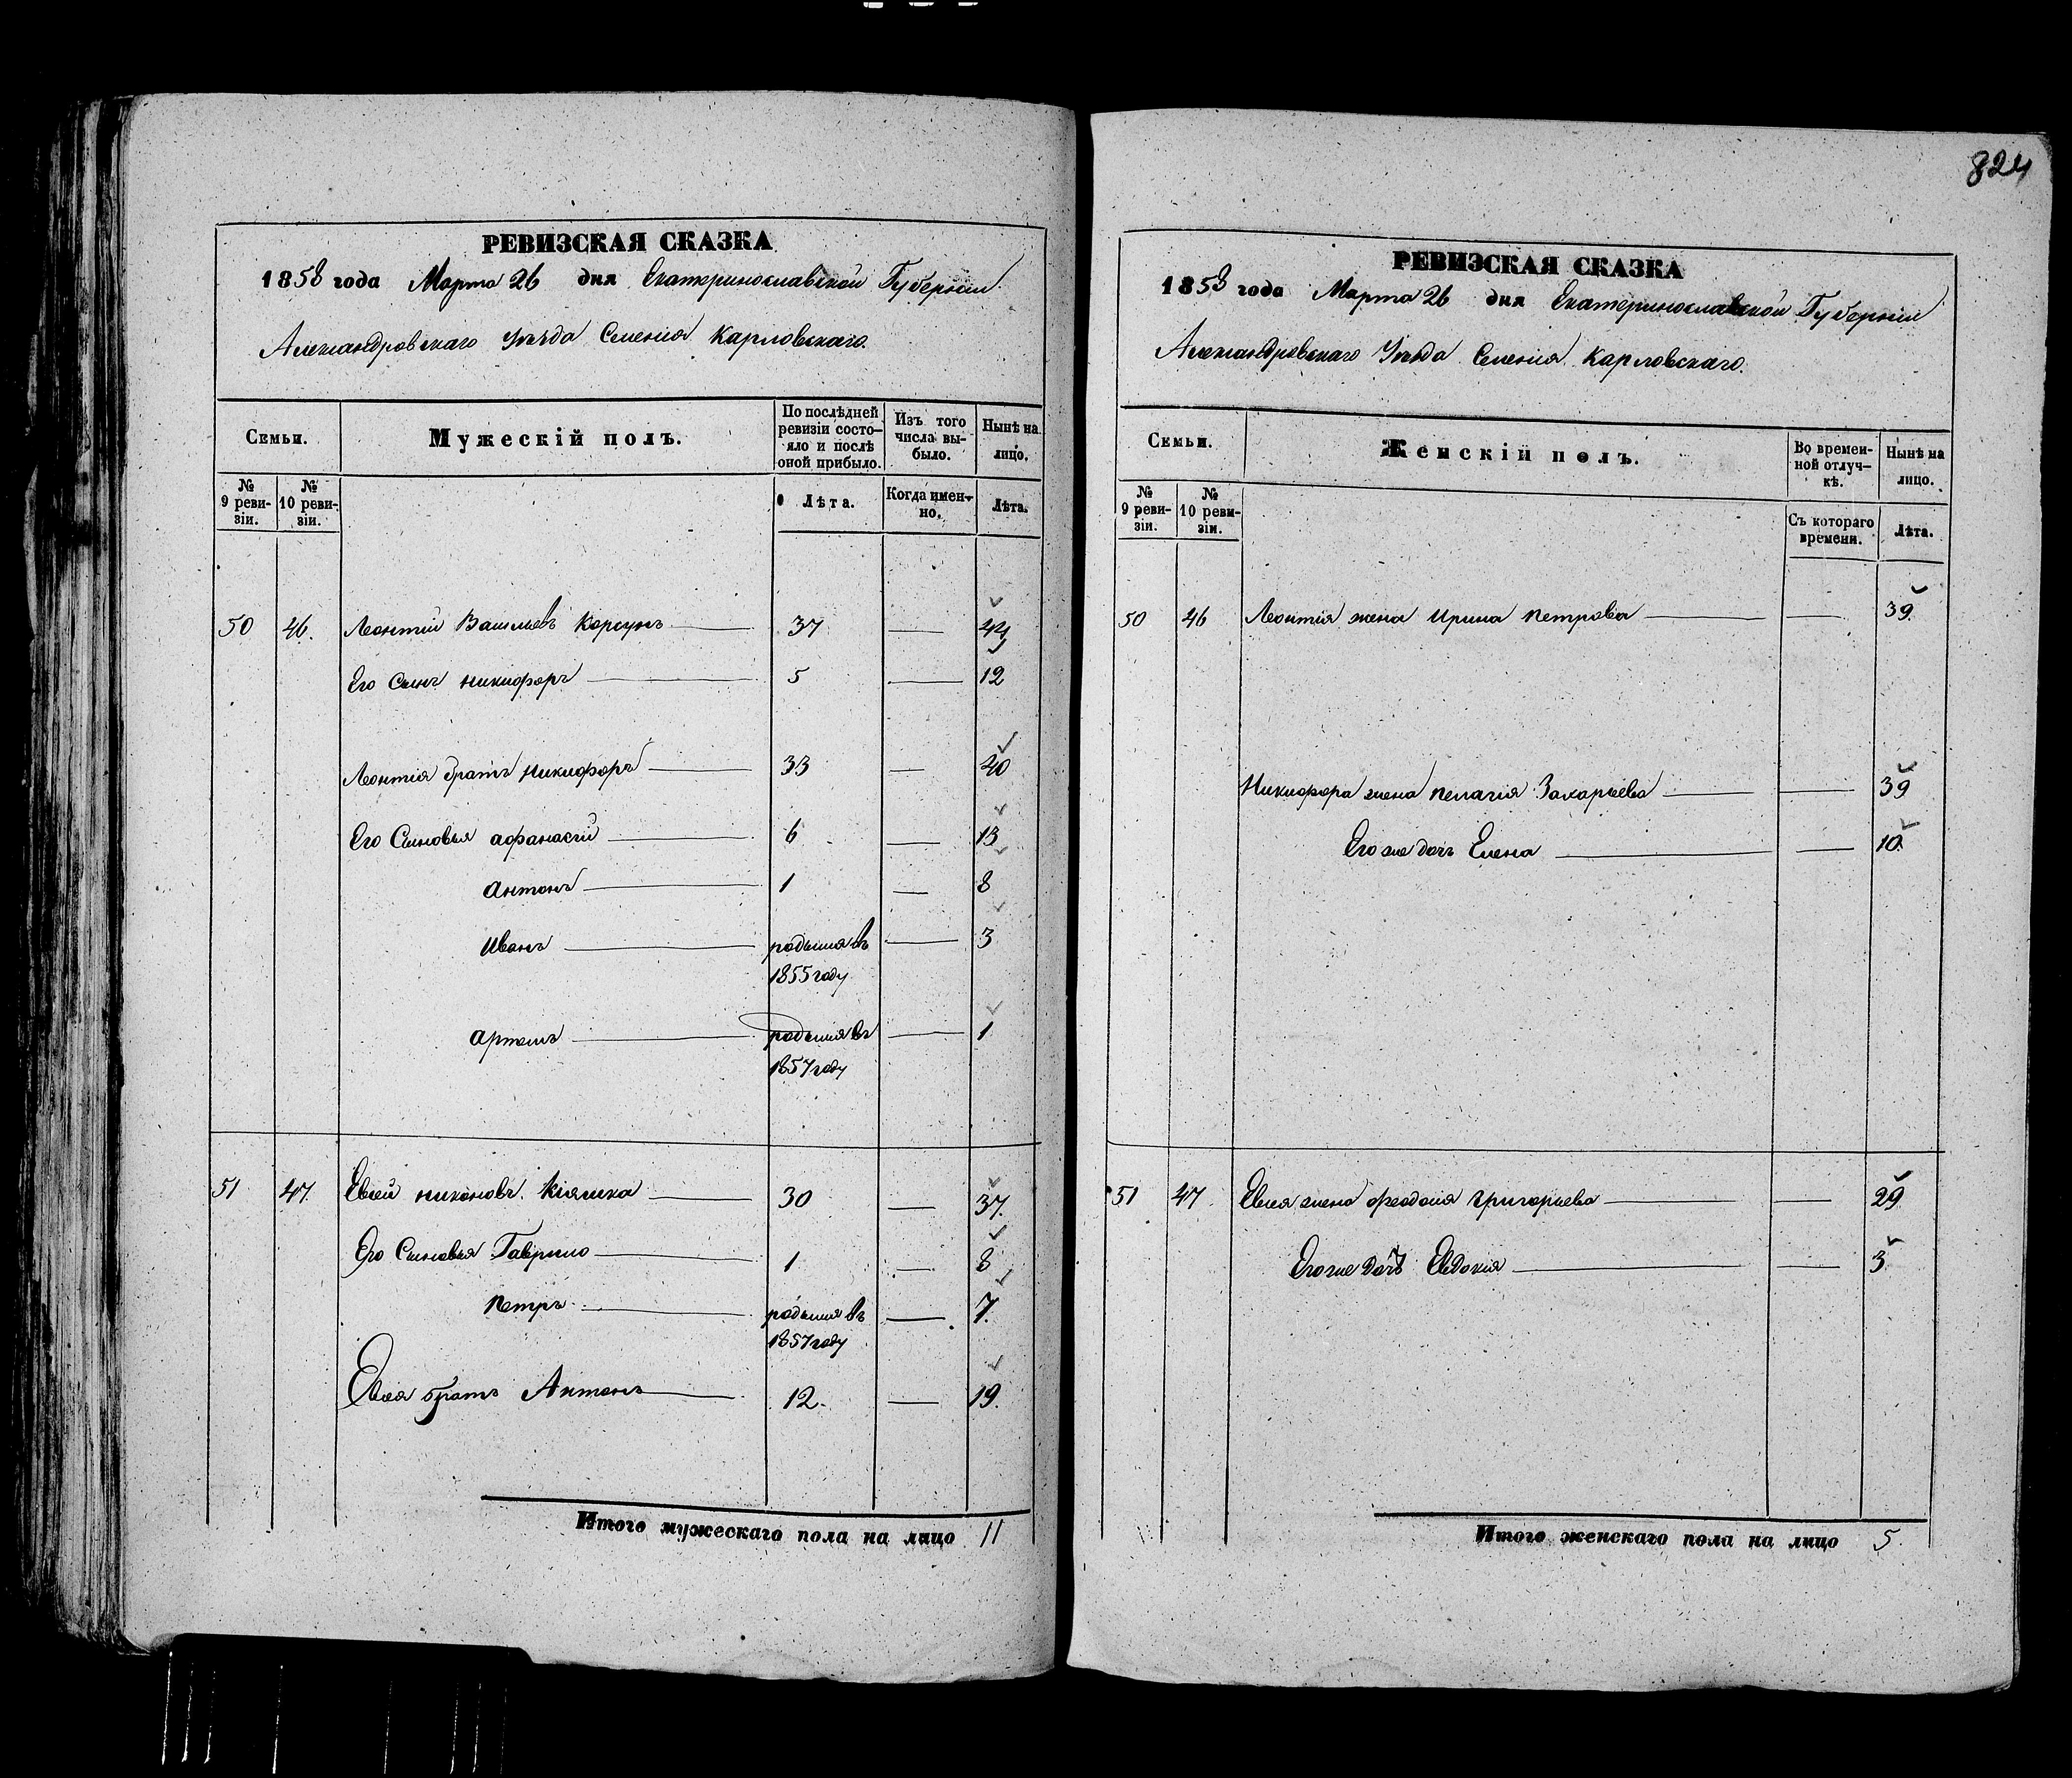 824
РЕВИЗСКАЯ СКАЗКА
1858 года Марта 26 дня Екатеринославской Губернии
Александровского Уѣзда Селенія Карловскаго.
Семьи.
Мужескій полъ.
По послѣдней
ревизіи состо–
яло и послѣ
оной прибыло.
Изъ того
числа вы–
было.
Нынѣ на
лицо.
№
9 реви–
зіи.
№
10 реви–
зіи.
Лѣта.
Когда имен–
но.
Лѣта.
50 46. Леонтій Васильевъ Корсунъ 37 — 44
Его Сынъ Никифоръ 5 — 12
Леонтія братъ Никифоръ 33 — 40
Его Сыновья Афанасій 6 — 13
Антонъ 1 — 8
Иванъ родился въ — 3
1855 году
Артемъ родился въ — 1
1857 году
51 47. Евсей Никоновъ Кіяшка 30 — 37.
Его Сыновья Гаврило 1 — 8
Петръ родился въ — 7.
1857 году
Евсея братъ Антонъ 12. — 19.
Итого мужескаго пола на лицо 11
РЕВИЗСКАЯ СКАЗКА
1858 года Марта 26 дня Екатеринославской Губерніи
Александровскаго Уѣзда Селенія Карловскаго.
Семьи.
Женскій полъ.
Во времен–
ной отлуч–
кѣ.
Нынѣ на
лицо.
№
9 реви–
зіи.
№
10 реви–
зіи.
Съ котораго
времени.
Лѣта.
50 46 Леонтія жена Ирина Петрова — 39.
Никифора жена Пелагія Захарьева — 39
Его же дочь Елена — 10.
51 47. Евсея жена Феодосія Григорьева — 29
Его же дочь Евдокія — 3
Итого женскаго пола на лицо 5.